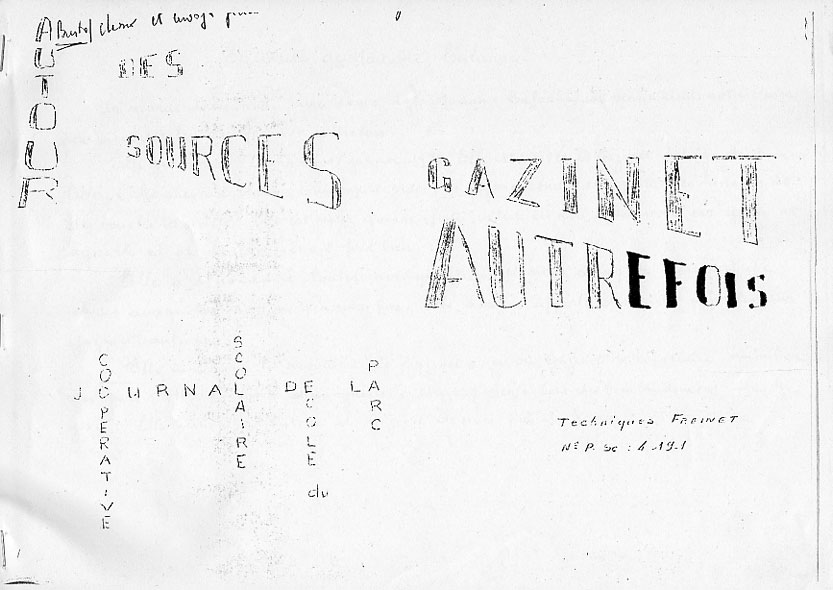 AUTOUR
DES
SOURCES
GAZINET
AUTREFOIS
JOURNAL DE L
COOPERATIVE
SCOLAIRE
ECOLE
du
PARC
Techniques FREINET
N° P. Sc : 4 191